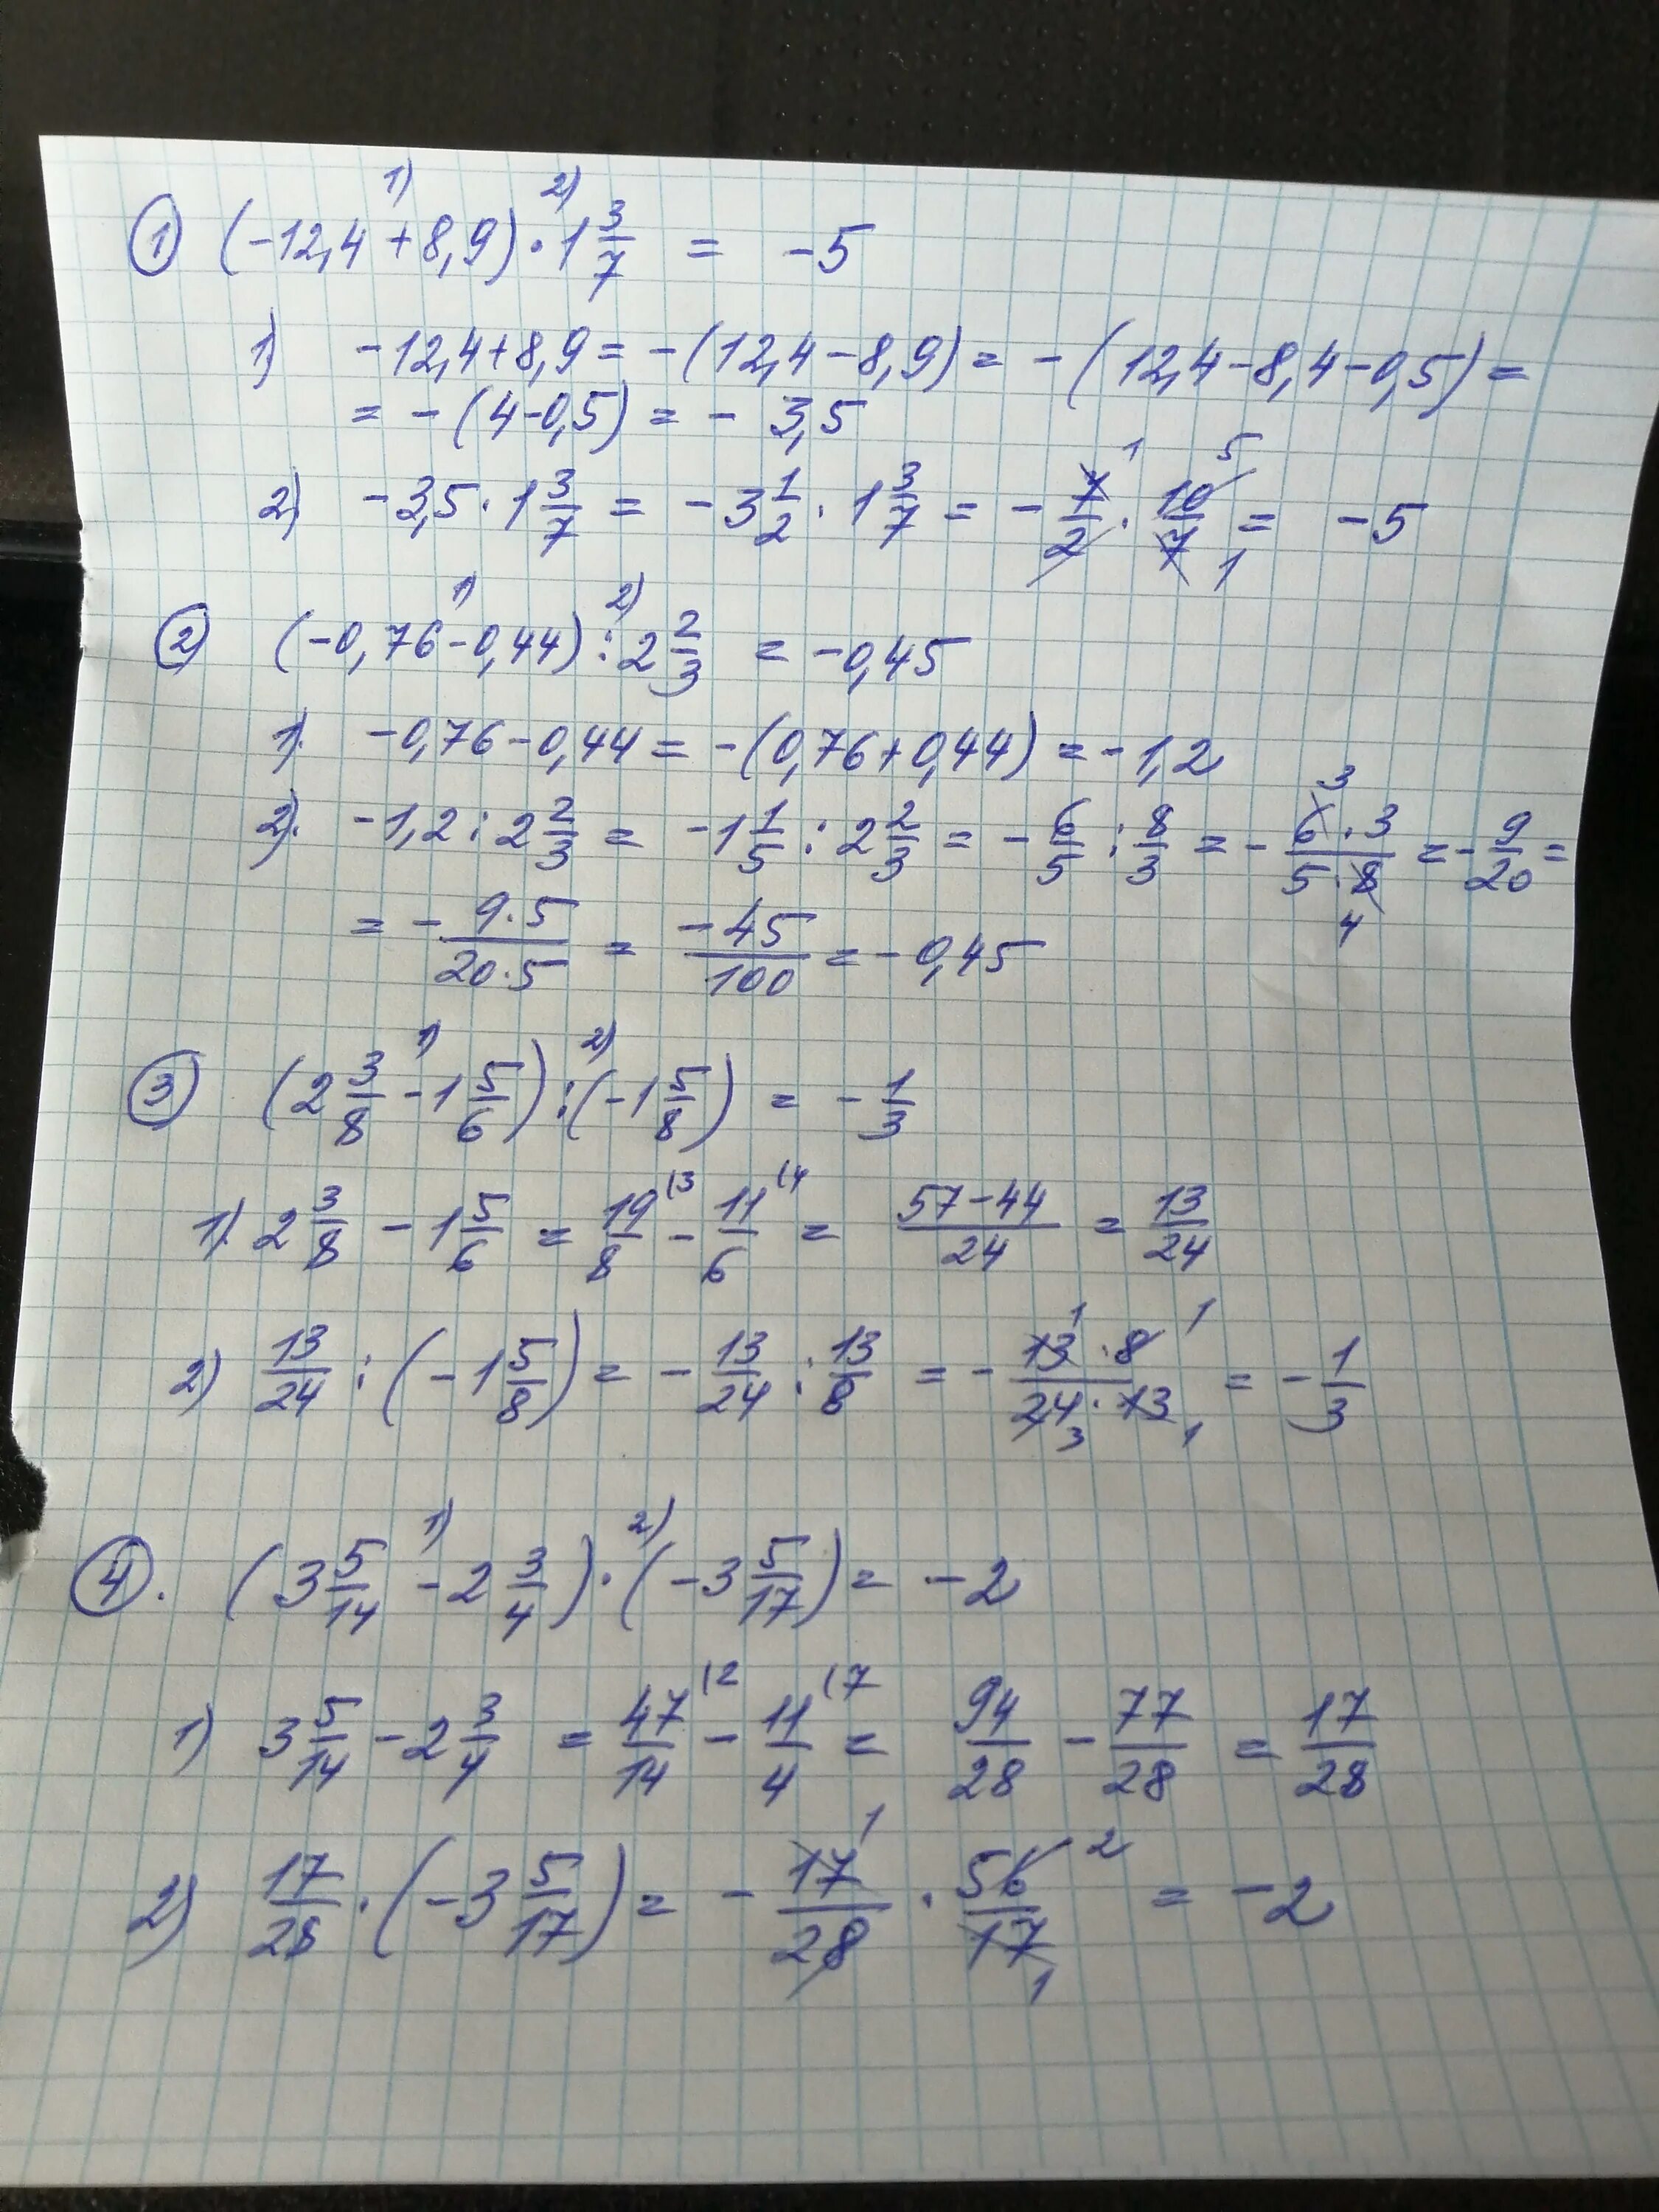 1) 2)
① (-12,4+8,9)·1 3/7 = -5
1) -12,4+8,9=-(12,4-8,9)=-(12,4-8,4-0,5)=
=-(4-0,5)=- 3,5
2) -3,5·1 3/7 = -3 1/2 · 1 3/7 = - 7/2 · 10/7 = -5
1 5 1
1) 2)
② (-0,76-0,44):2 2/3 = -0,45
1). -0,76-0,44=-(0,76+0,44)=-1,2
2). -1,2:2 2/3 = -1 1/5 : 2 2/3 = - 6/5 : 8/3 = - 6·3/5·8 = - 9/20 =
3 4
= - 9·5/20·5 = -45/100 = -0,45
1) 2)
③ (2 3/8 - 1 5/6):(-1 5/8) = - 1/3
1). 2 3/8 - 1 5/6 = 19/8 (3 - 11/6 (4 = 57-44/24 = 13/24
2) 13/24 : (-1 5/8) = - 13/24 : 13/8 = - 13·8/24·13 = - 1/3
1 1 3 1
1) 2)
④. (3 5/14 - 2 3/4)·(-3 5/17) = -2
1) 3 5/14 - 2 3/4 = 47/14 (2 - 11/4 (7 = 94/28 - 77/28 = 17/28
2) 17/28 · (-3 5/17) = - 17/28 · 56/17 = -2
1 2 1